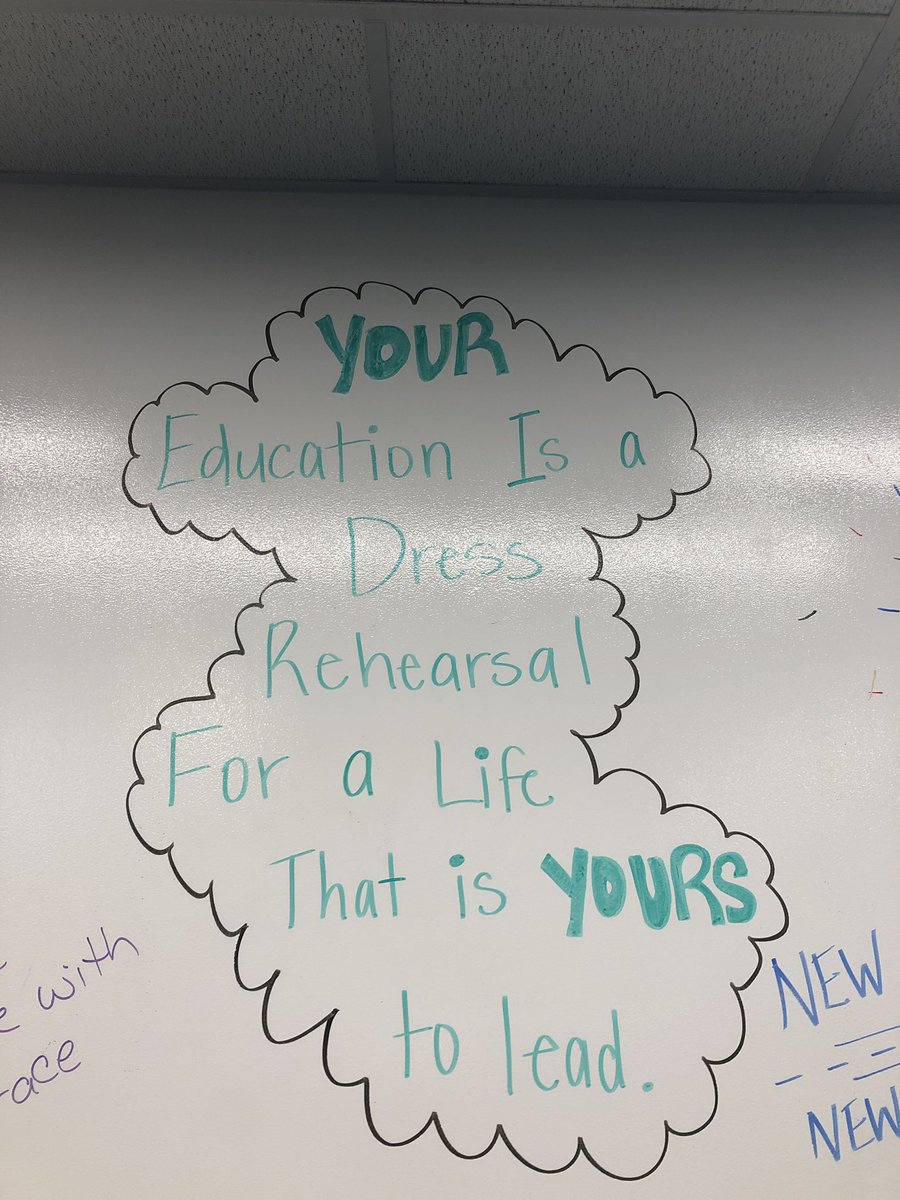 YOUR
Education Is a
Dress
Rehearsal
For a Life
That is YOURS
to lead.
with
NEW
NEW